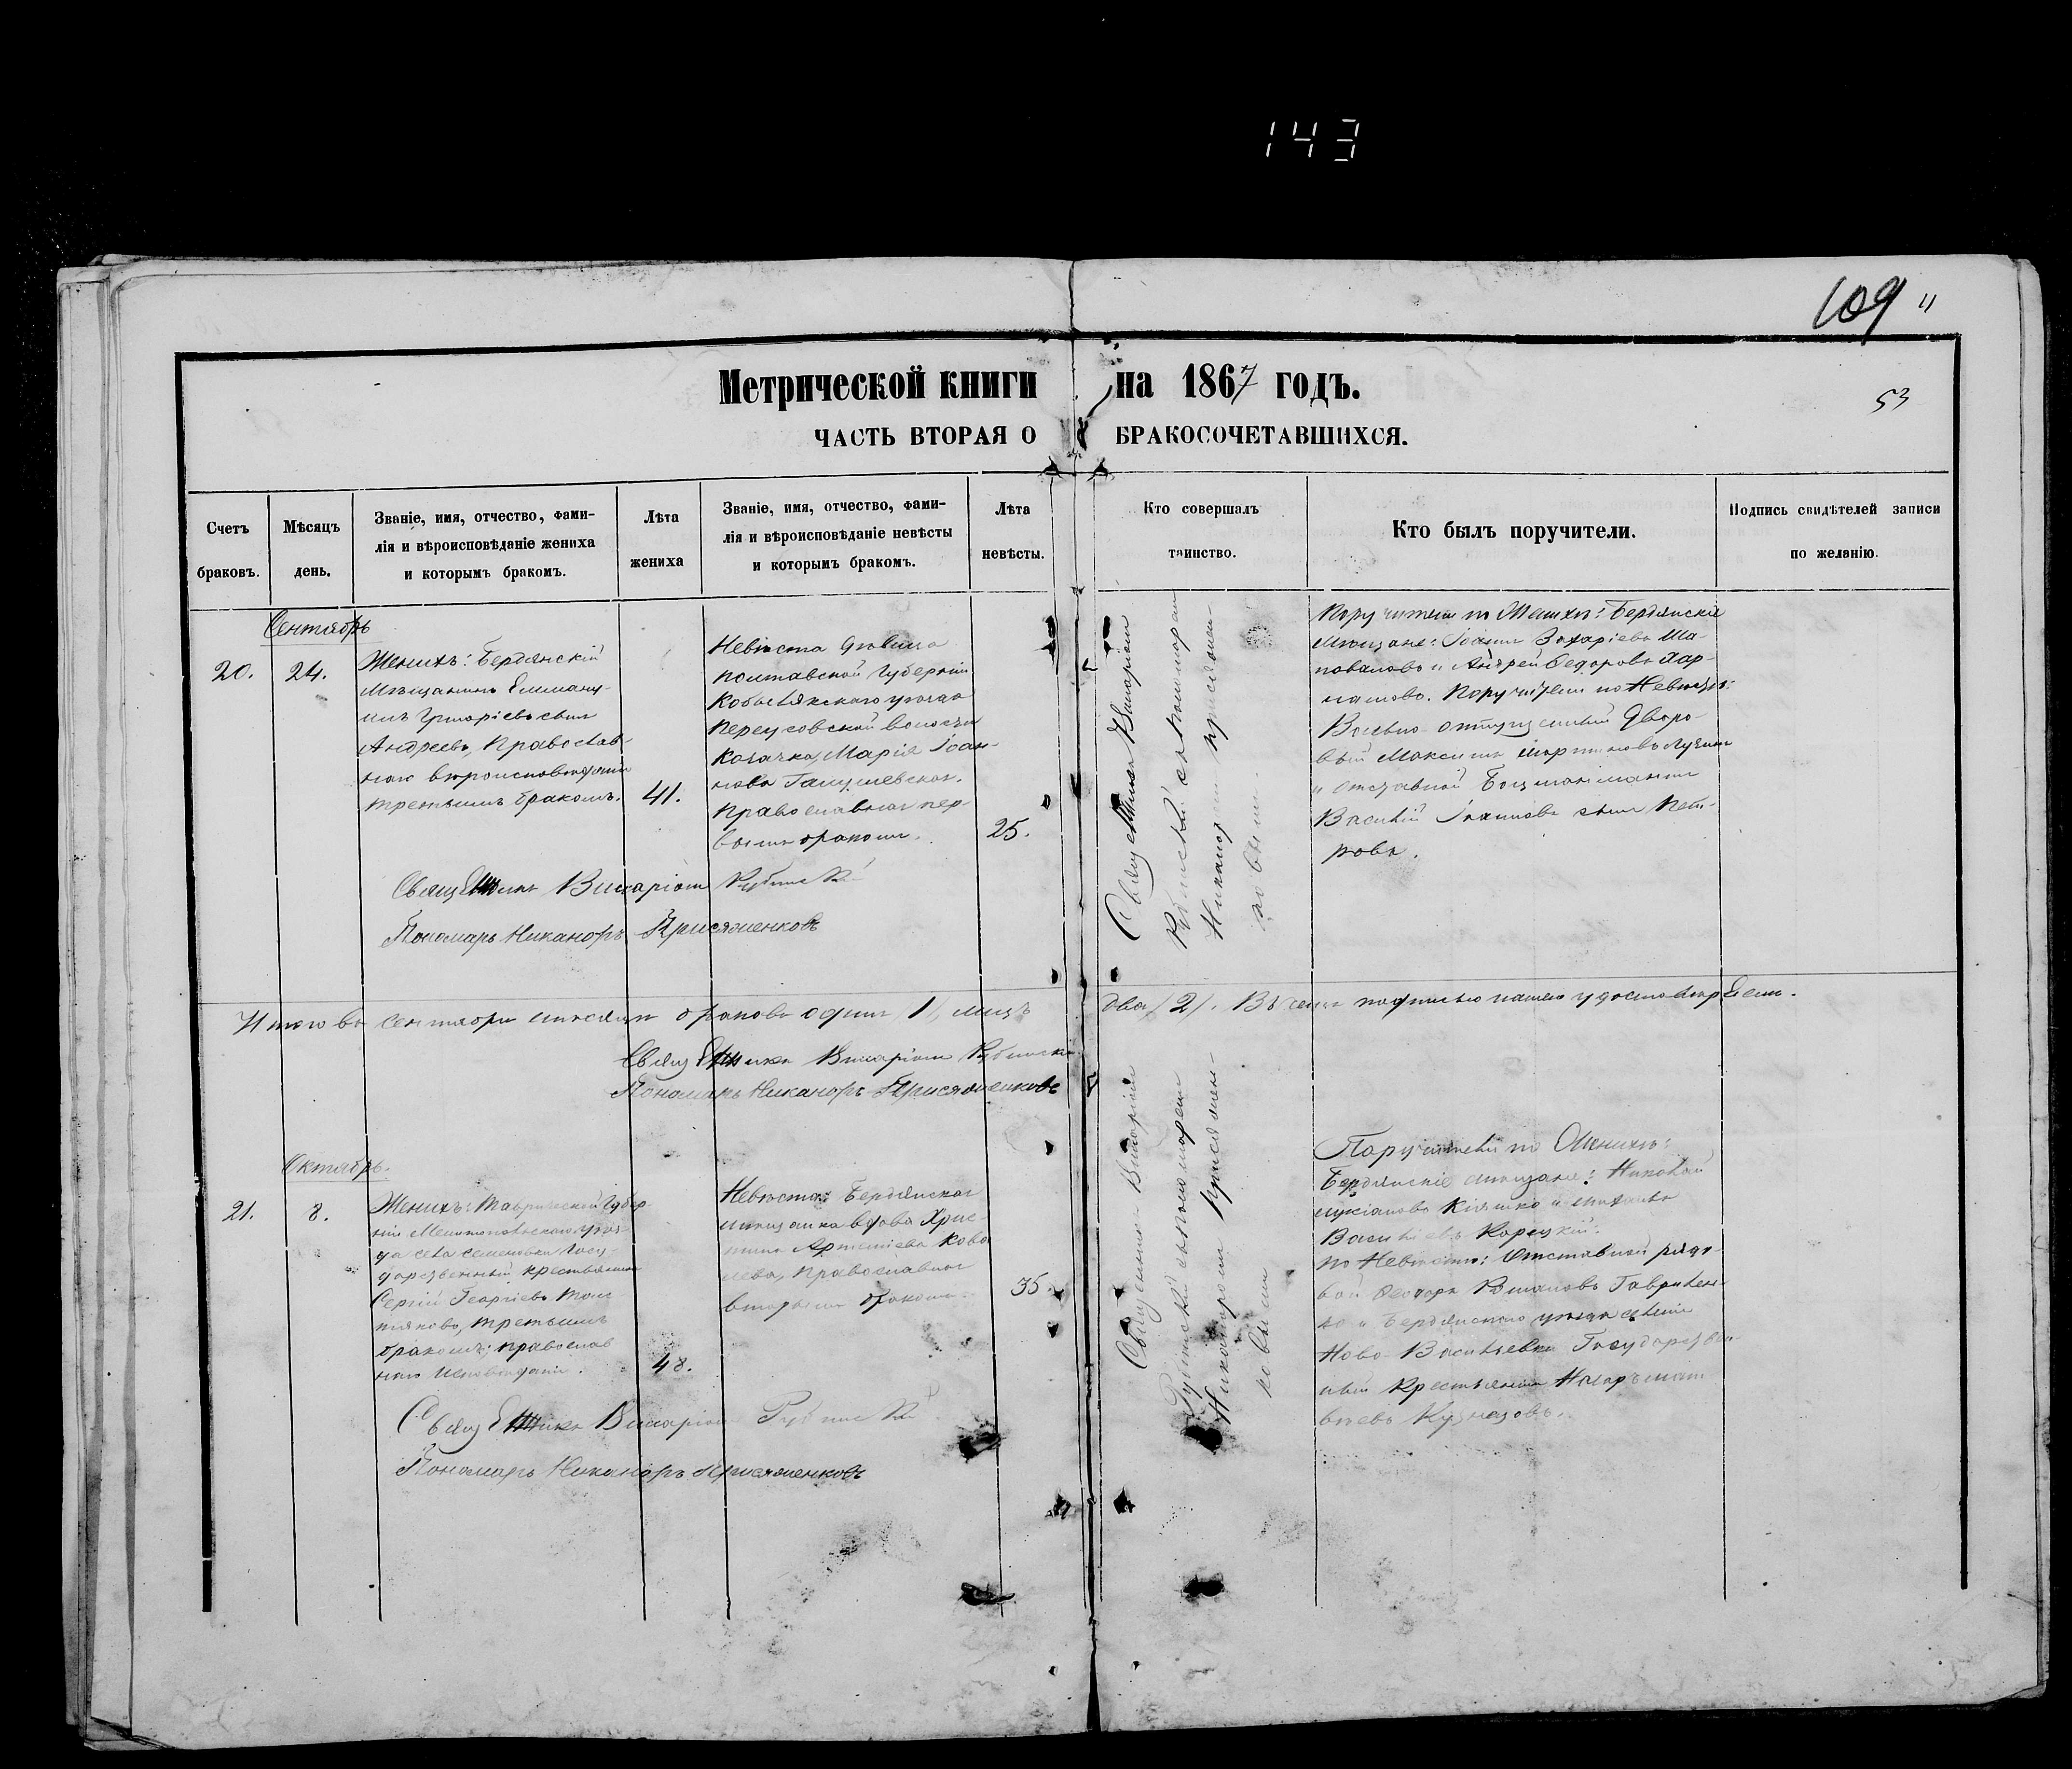 143
109 "
53
Метрической книги на 1867 годъ.
ЧАСТЬ ВТОРАЯ О БРАКОСОЧЕТАВШИХСЯ.
Счетъ
браковъ.
Мѣсяцъ
день.
Званіе, имя, отчество, фами-
лія и вѣроисповѣданіе жениха
и которымъ бракомъ.
Лѣта
жениха
Званіе, имя, отчество, фами-
лія и вѣроисповѣданіе невѣсты
и которымъ бракомъ.
Лѣта
невѣсты.
Кто совершалъ
таинство.
Кто былъ поручители.
Подпись свидѣтелей записи
по желанію.
Сентябрь
20.
24.
Женихъ: Бердянскій
Мѣщанинъ Емману-
илъ Григоріевъ сынъ
Андреевъ, Православ-
наго вѣроисповѣданія
третьимъ бракомъ.
41.
Невѣста дѣвица
Полтавской Губерніи
Кобылякскаго уѣзда
волости
Козачка Марія Іоан-
нова
Православнаго пер-
вымъ бракомъ.
25.
Священникъ Виссаріонъ
Рубинскій съ пономаремъ
Никаноромъ Присяжен-
ковымъ.
Поручители по Женихѣ: Бердянскіе
Мѣщане: Іоаннъ Захаріевъ Ша-
поваловъ и Андрей Федоровъ Хар-
ламовъ. Поручители по Невѣстѣ:
Вольно отпущенный Дворо-
вый Максимъ Мартиновъ
и отставной Боцманманъ
Василій Іоанновъ сынъ Пет-
ровъ.
Священникъ Виссаріонъ Рубинскій
Пономарь Никаноръ Присяженковъ
Итого въ сентябрѣ мѣсяцѣ браковъ одинъ 1, лицъ два /2/. Въ чемъ подписью нашею удостовѣряемъ.
Священникъ Виссаріонъ Рубинскій
Пономарь Никаноръ Присяженковъ
Октябрь.
21.
8.
Женихъ: Таврической Губер-
ніи Мелитопольскаго уѣз-
да села Семеновки Госу-
дарственный крестьянинъ
Сергій Георгіевъ
третьимъ
бракомъ; православ
наго исповѣданія.
48.
Невѣста: Бердянская
мѣщанка вдова Хрис-
тина Артеміева Кова
лева, Православнаго
вторымъ бракомъ.
35.
Священникъ Виссаріонъ
Рубинскій съ пономаремъ
Никаноромъ Присяжен-
ковымъ
Поручители по Женихѣ:
Бердянскіе мѣщане: Николай
Лукіановъ Кіяшко и Михаилъ
Васильевъ Корецкій:
по Невѣстѣ: Отставной рядо-
вой Феодоръ Романовъ Гаврилен-
ко и Бердянскаго уѣзда селенія
Ново-Васильевки Государствен-
ный Крестьянинъ Назаръ Мат
вѣевъ Кузнецовъ.
Священникъ Виссаріонъ Рубинскій
Пономарь Никаноръ Присяженковъ